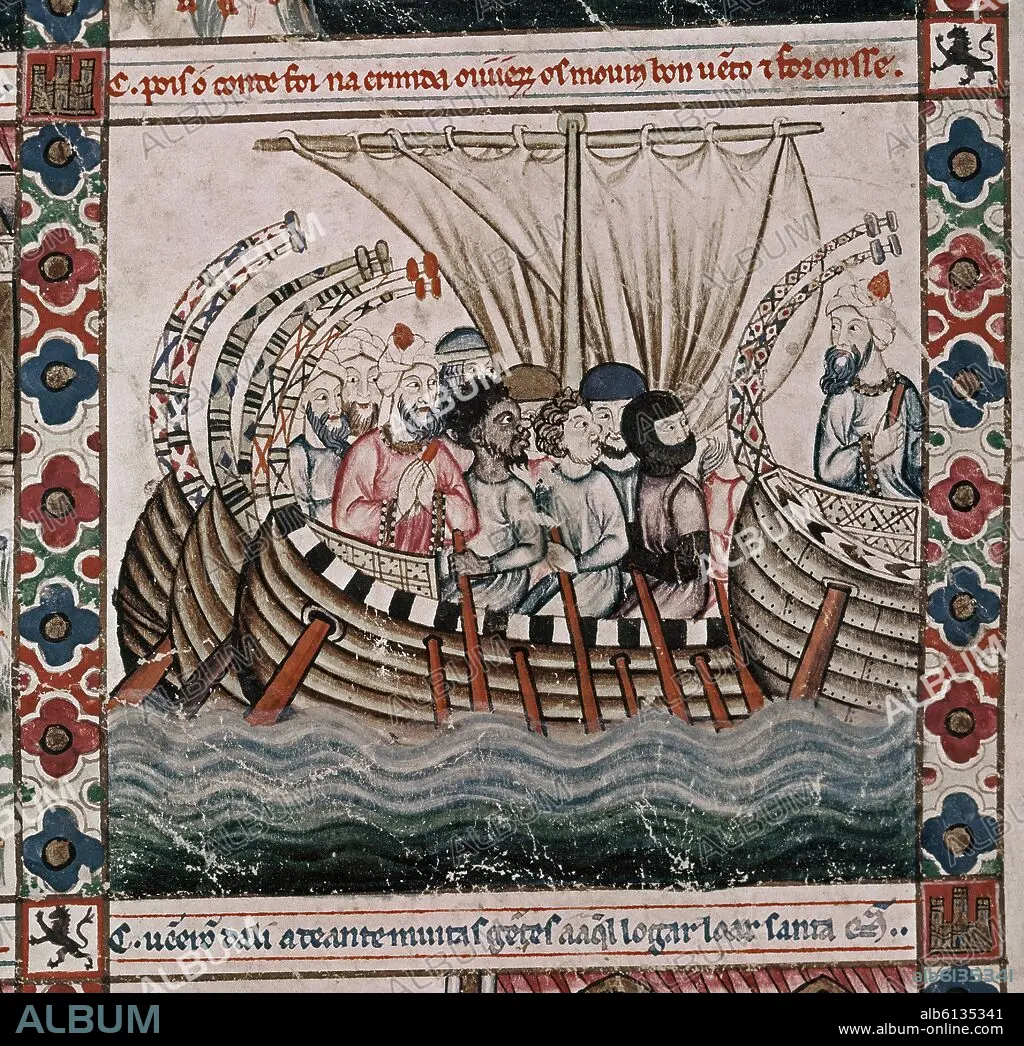 C. pois o conte foi na ermida ouuer os mouros bon uẽto ⁊ foronsse.
C. uẽerõ dali adeante muitas gẽtes aaq̃l logar loar santa Mª..
ALBUM
alb6135341
ALBUM
alb6135341
www.album-online.com